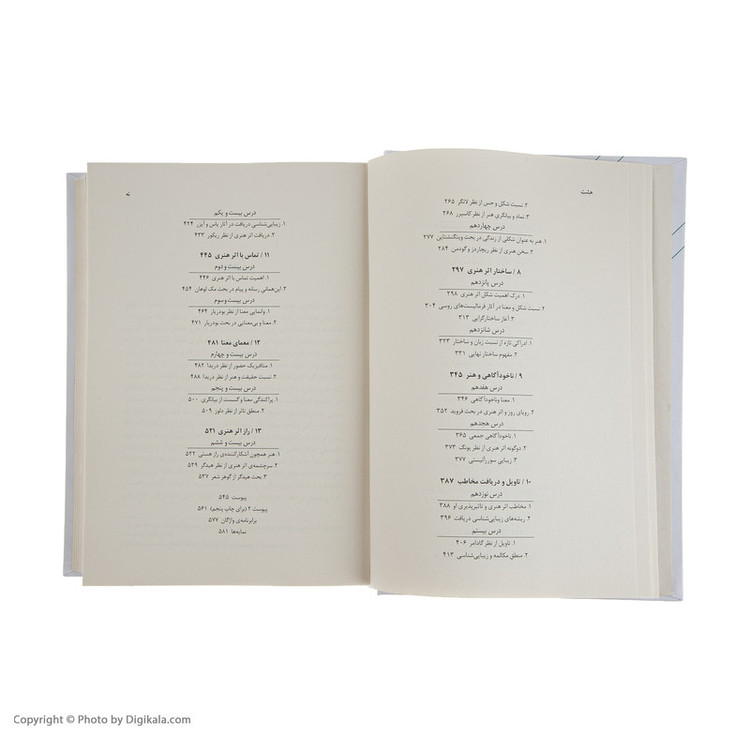 هشت
۲. نسبت شکل و حس از نظر لانگر ۲۶۵
۳. نماد و بیانگری هنر از نظر کاسیرر ۲۶۸
درس چهاردهم
۱. هنر به عنوان شکلی از زندگی در بحث ویتگنشتاین ۲۷۷
۲. سخن هنری از نظر ریچاردز و گودمن ۲۸۴
۸ / ساختار اثر هنری ۲۹۷
درس پانزدهم
۱. درک اهمیت شکل اثر هنری ۲۹۸
۲. نسبت شکل و معنا در آثار فرمالیست‌های روسی ۳۰۴
۳. آغاز ساختارگرایی ۳۱۳
درس شانزدهم
۱. ادراکی تازه از نسبت زبان و ساختار ۳۲۳
۲. مفهوم ساختار نهایی ۳۳۱
۹ / ناخودآگاهی و هنر ۳۴۵
درس هفدهم
۱. معنا وناخودآگاهی ۳۴۶
۲. رویای روز و اثر هنری در بحث فروید ۳۵۲
درس هجدهم
۱. ناخودآگاهی جمعی ۳۶۵
۲. دوگونه اثر هنری از نظر یونگ ۳۷۳
۳. زیبایی سوررآلیستی ۳۷۷
۱۰ / تاویل و دریافت مخاطب ۳۸۷
درس نوزدهم
۱. مخاطب اثر هنری و تاثیرپذیری او ۳۸۸
۲. ریشه‌های زیبایی‌شناسی دریافت ۳۹۶
درس بیستم
۱. تاویل از نظر گادامر ۴۰۶
۲. منطق مکالمه و زیبایی‌شناسی ۴۱۳
نه
درس بیست و یکم
۱. زیبایی‌شناسی دریافت در آثار یاس و آیزر ۴۲۴
۲. دریافت اثر هنری از نظر ریکور ۴۳۳
۱۱ / تماس با اثر هنری ۴۴۵
درس بیست و دوم
۱. اهمیت تماس با اثر هنری ۴۴۶
۲. این‌همانی رسانه و پیام در بحث مک لوهان ۴۵۴
درس بیست و سوم
۱. وانمایی معنا از نظر بودریار ۴۶۴
۲. معنا و بی‌معنایی در بحث بودریار ۴۷۱
۱۲ / معمای معنا ۴۸۱
درس بیست و چهارم
۱. متافیزیک حضور از نظر دریدا ۴۸۲
۲. نسبت حقیقت و هنر از نظر دریدا ۴۸۸
درس بیست و پنجم
۱. پراکندگی معنا و گسست از بیانگری ۵۰۰
۲. منطق تاثر از نظر دلوز ۵۰۹
۱۳ / راز اثر هنری ۵۲۱
درس بیست و ششم
۱. هنر همچون آشکارکننده‌ی راز هستی ۵۲۲
۲. سرچشمه‌ی اثر هنری از نظر هیدگر ۵۲۹
۳. بحث هیدگر از گوهر شعر ۵۳۷
پیوست ۵۴۵
پیوست ۲ (برای چاپ پنجم) ۵۶۱
برابرنامه‌ی واژگان ۵۷۷
نمایه‌ها ۵۸۱
Copyright © Photo by Digikala.com